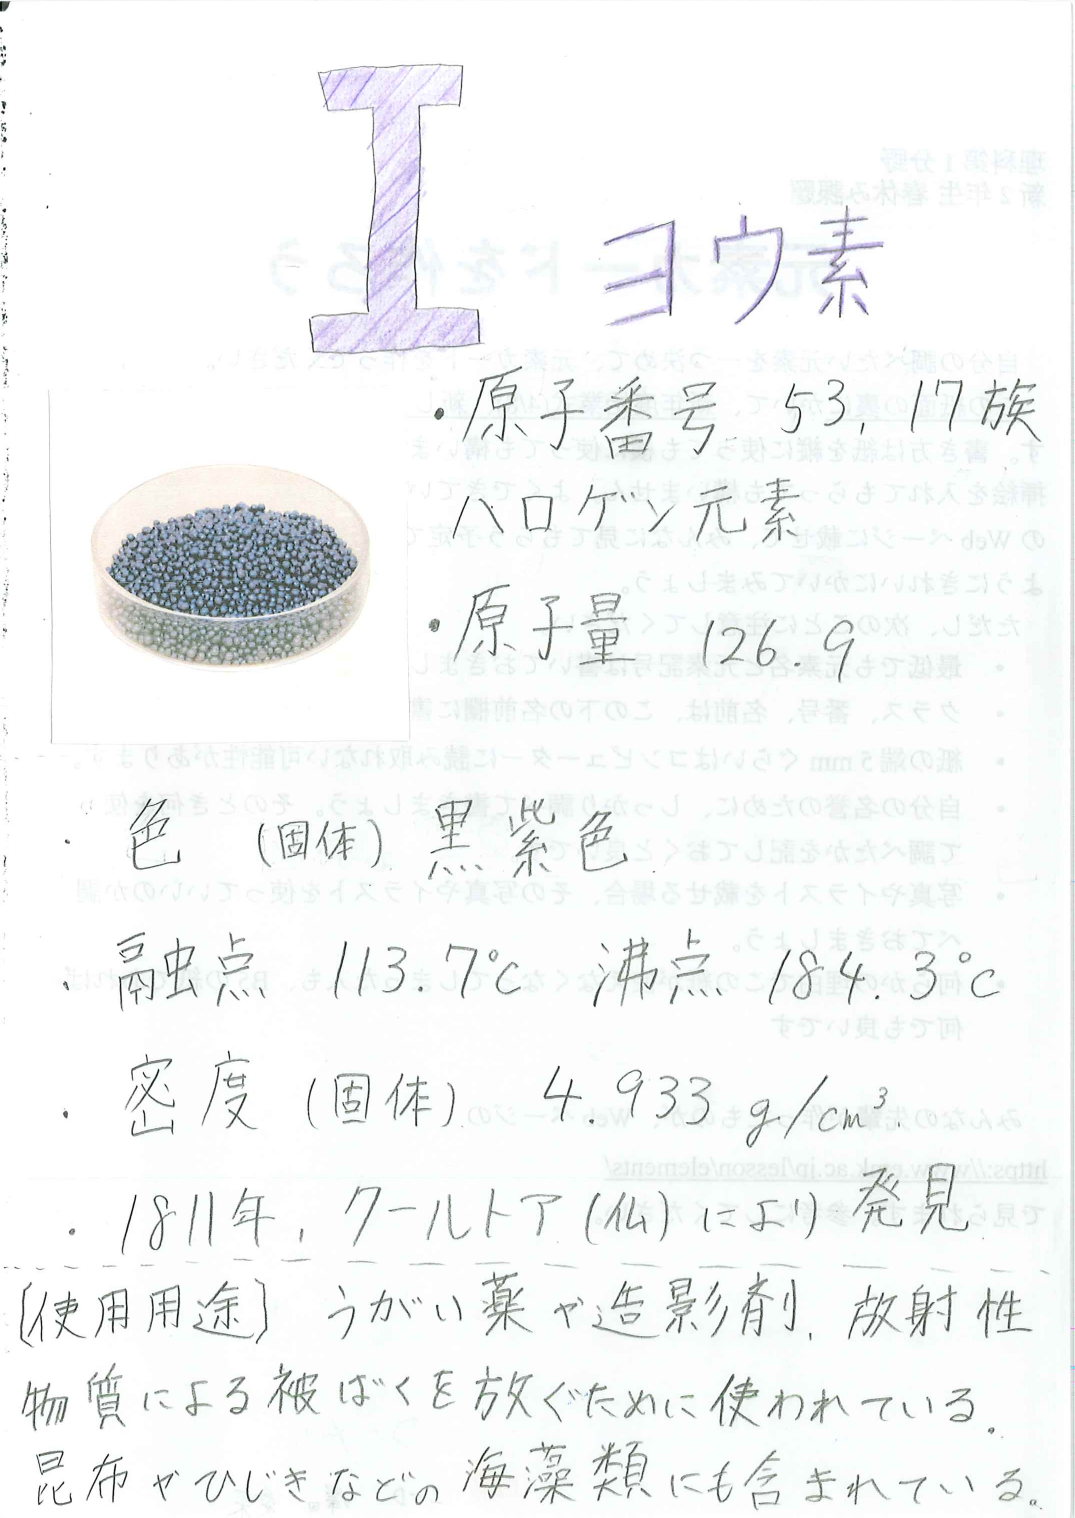 I
ヨウ素
・原子番号 53, 17族
ハロゲン元素
・原子量 126.9
・色 (固体) 黒紫色
・融点 113.7℃ 沸点 184.3℃
・密度 (固体) 4.933 g/cm³
・1811年, クールトア (仏) により 発見
〔使用用途〕 うがい薬や造影剤, 放射性
物質による被ばくを放ぐために使われている。
昆布やひじきなどの海藻類にも含まれている。